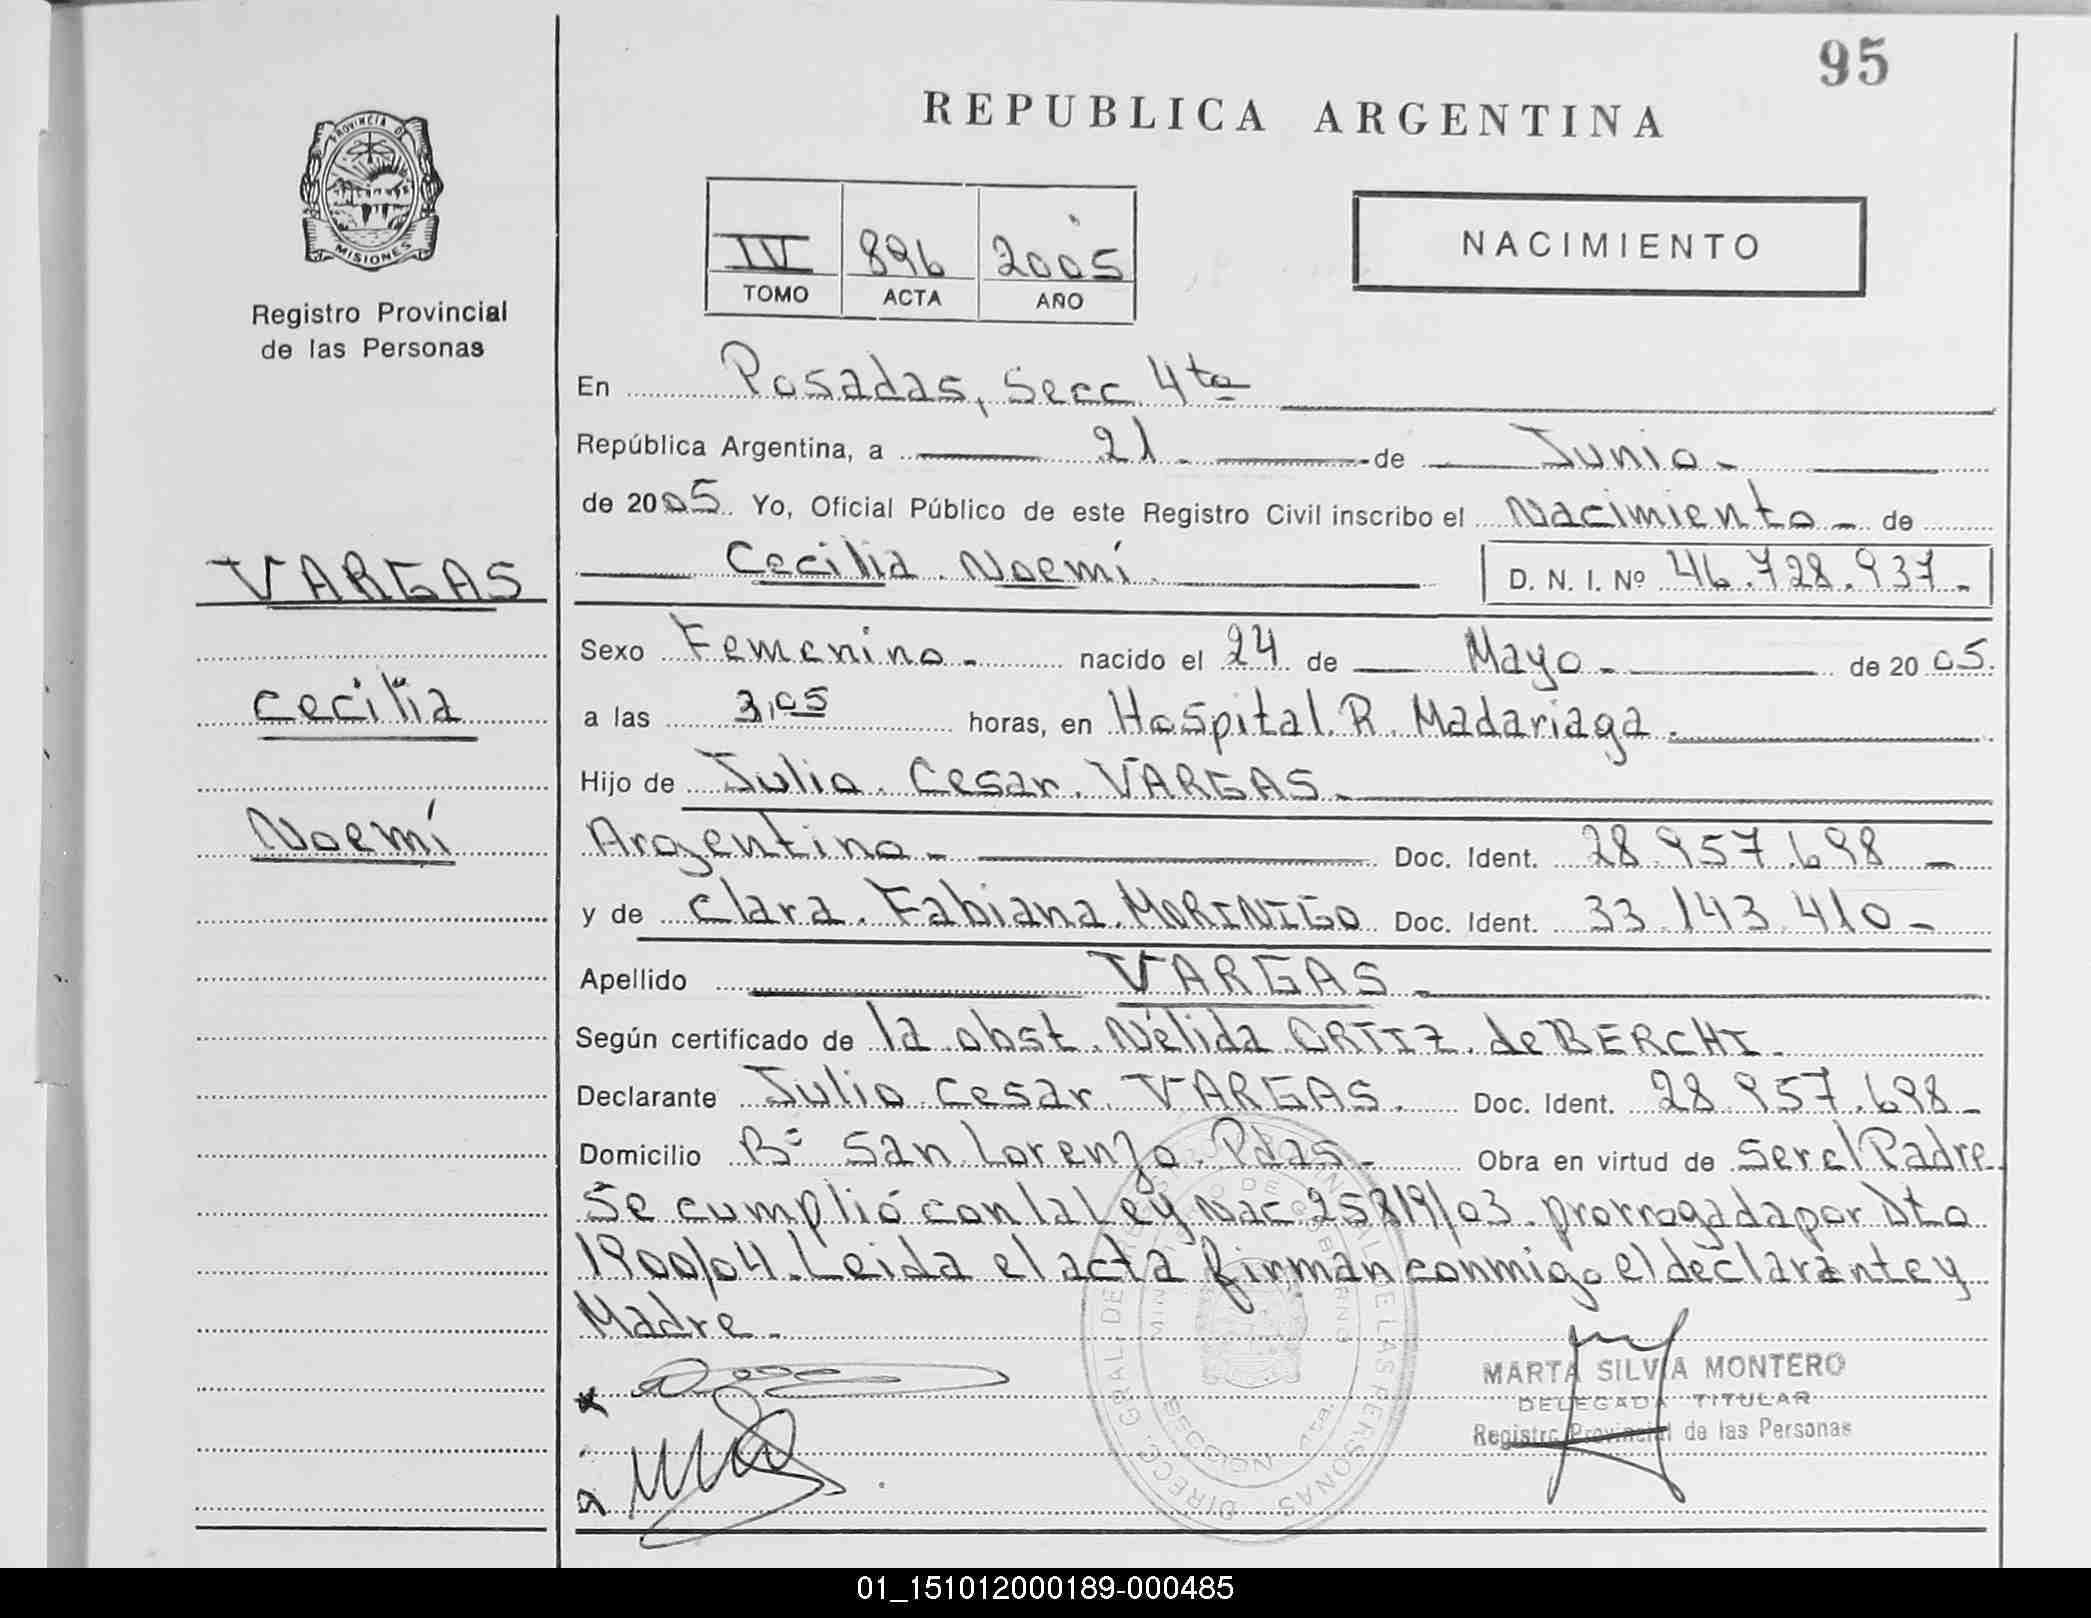 95
REPUBLICA ARGENTINA
PROVINCIA DE
MISIONES
Registro Provincial
de las Personas
IV 896 2005
TOMO ACTA AÑO
NACIMIENTO
En Posadas, Secc 4ta
República Argentina, a 21 de Junio
de 2005. Yo, Oficial Público de este Registro Civil inscribo el Nacimiento de
VARGAS
Cecilia Noemí D. N. I. Nº 46.728.937.
Sexo Femenino nacido el 24 de Mayo de 2005.
Cecilia
a las 3,05 horas, en Hospital R. Madariaga
Hijo de Julio Cesar VARGAS
Noemí
Argentino Doc. Ident. 28.957.698
y de Clara Fabiana MORINIGO Doc. Ident. 33.143.410
Apellido VARGAS
Según certificado de la obst. Nélida ORTIZ de BERCHI
Declarante Julio Cesar VARGAS Doc. Ident. 28.957.698
Domicilio Bº San Lorenzo Pdas Obra en virtud de ser el Padre
Se cumplió con la Ley Nac 25819/03 prorrogada por Dto
1900/04. Leida el acta firman conmigo el declarante y
Madre
MARTA SILVIA MONTERO
DELEGADA TITULAR
Registro Provincial de las Personas
01_151012000189-000485